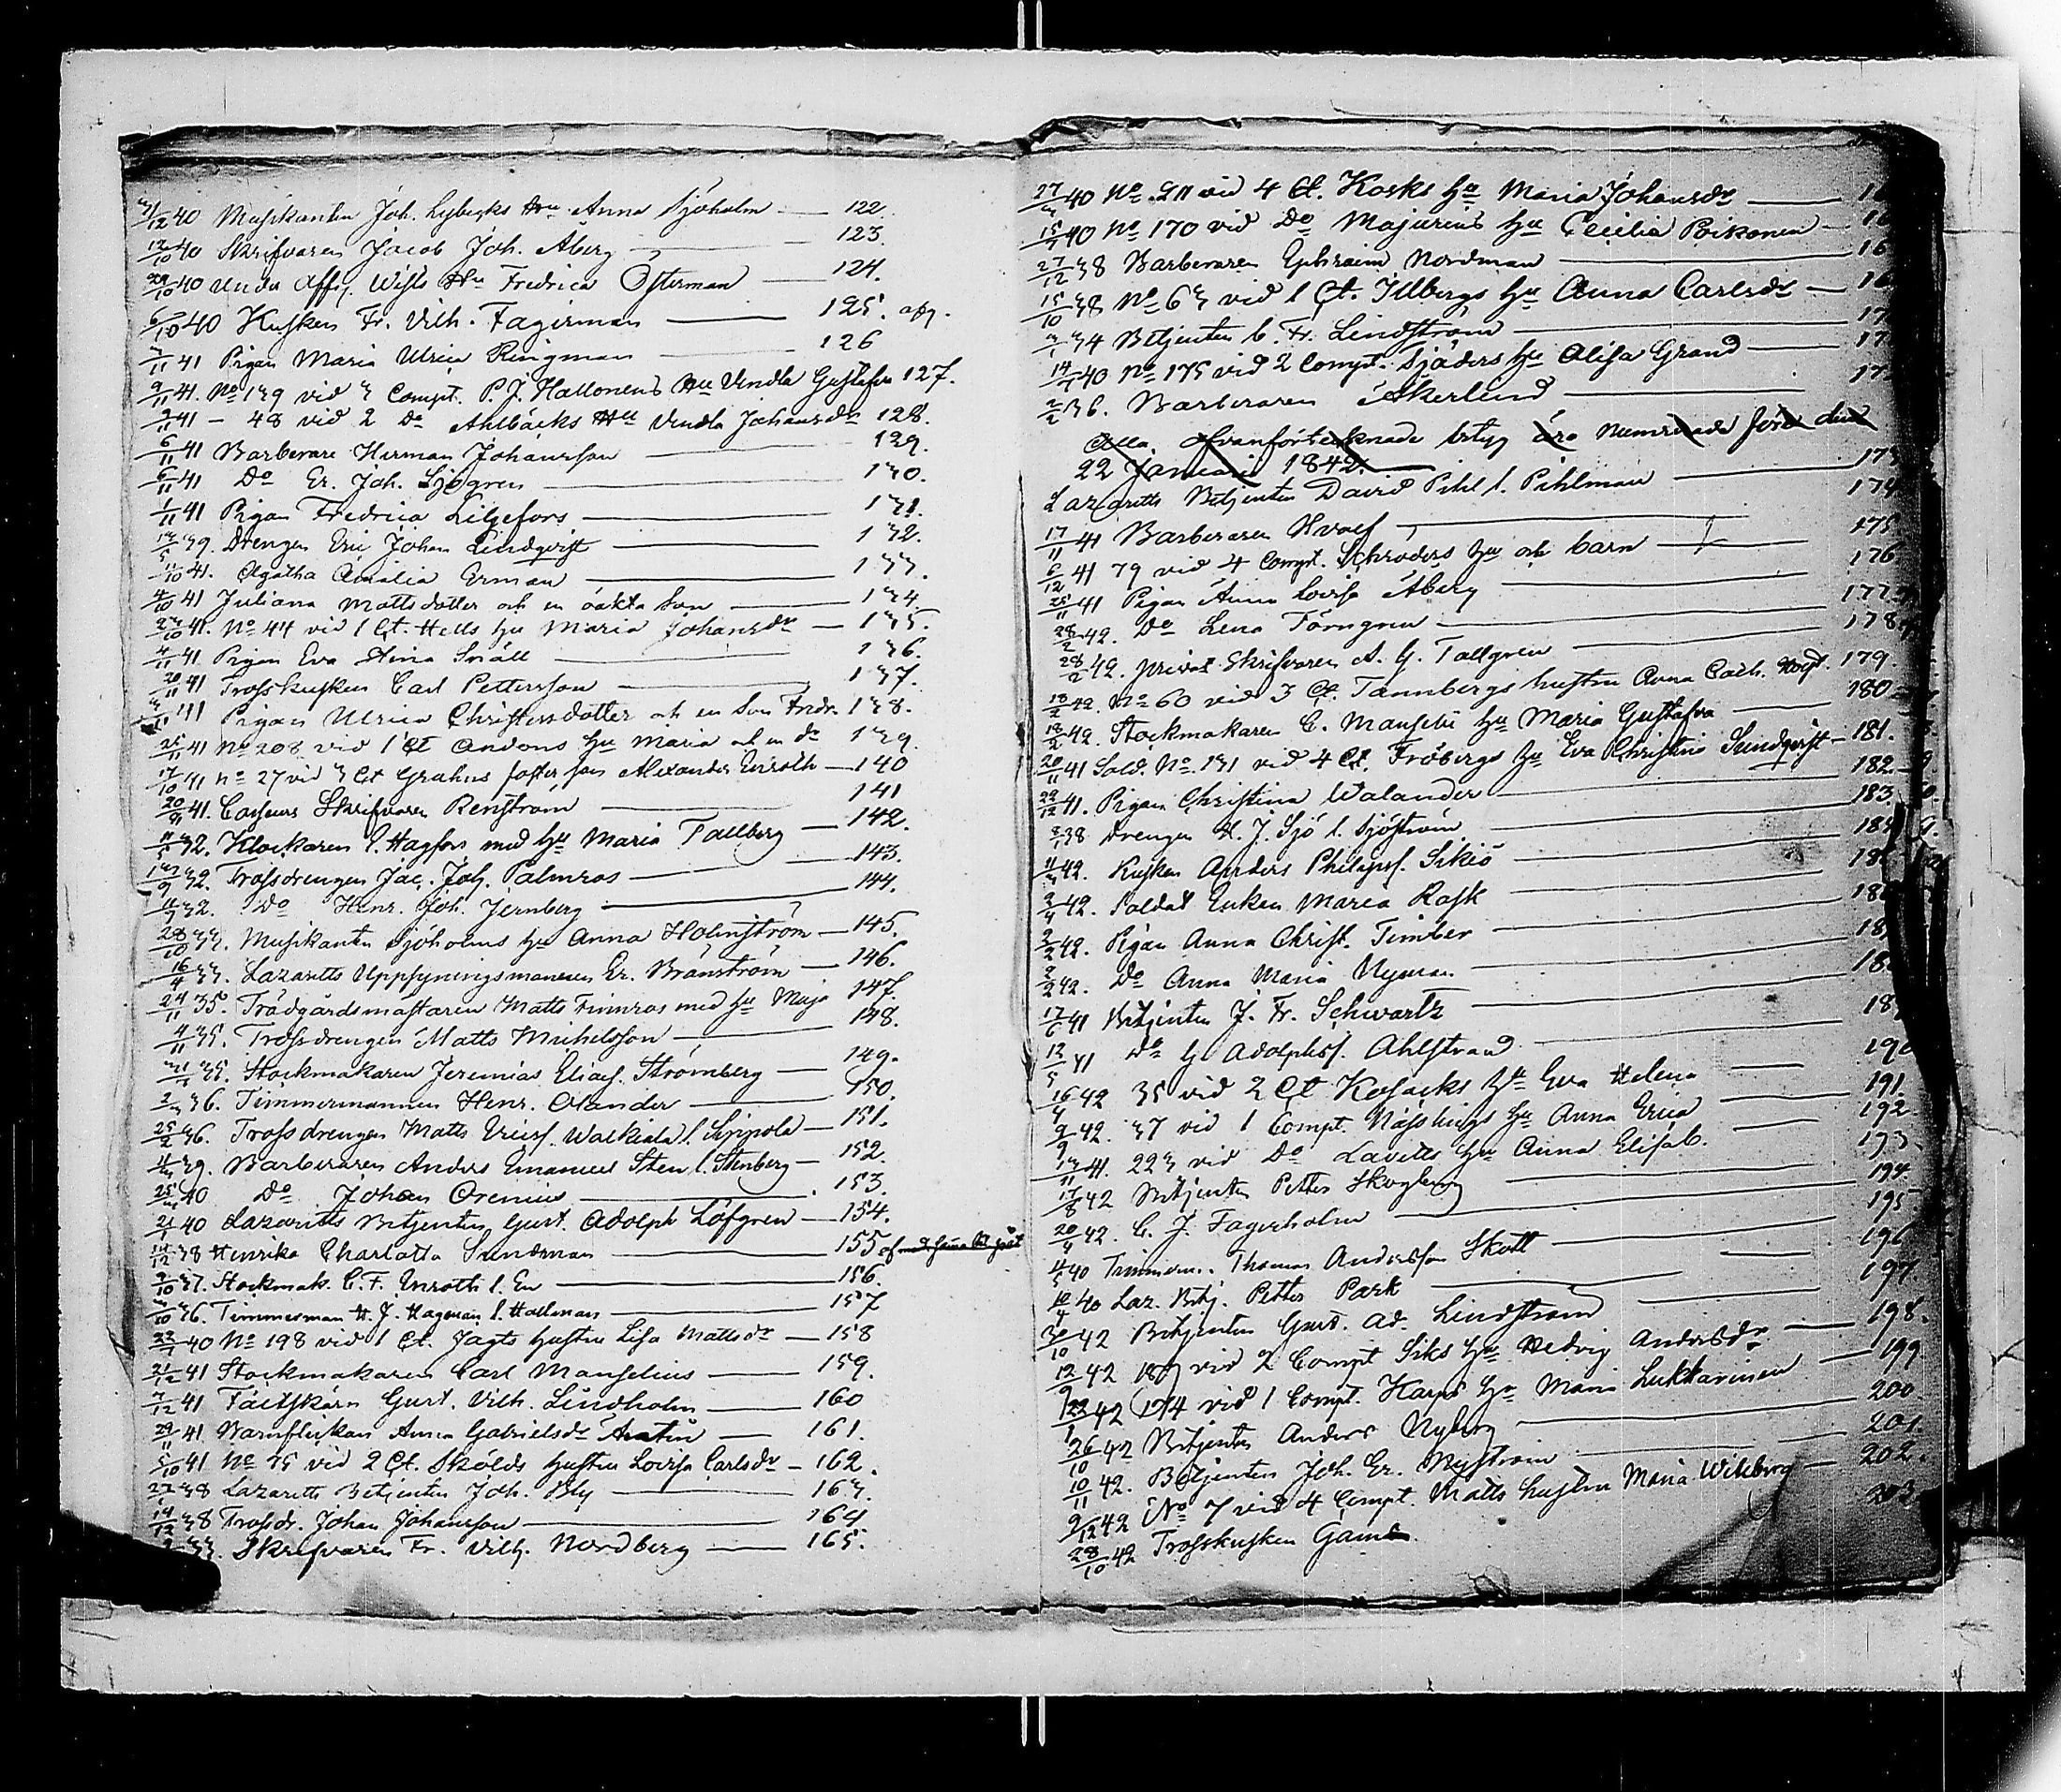 3/12 40 Musikanten Joh. Lybecks Hu Anna Sjöholm — 122.
12/10 40 Skrifvaren Jacob Joh. Åberg — 123.
29/10 40 Under Offic. Wists Hu Fredrica Österman — 124.
6/10 40 Kusken Fr. Vilh. Fagerman — 125. afg.
3/11 41 Pigan Maria Ulrica Ringman — 126
9/11 41. No 139 vid 3 Compt. P. J. Hallonens Hu Vendla Gustafva 127.
9/11 41 – 48 vid 2 Do Ahlbäcks Hu Vendla Johansdr 128.
6/11 41 Barberare Herman Johansson — 129.
6/11 41 Do Er. Joh. Sjögren — 130.
1/11 41 Pigan Fredrica Liljefors — 131.
13/5 39. Drengen Eric Johan Lindqvist — 132.
11/10 41. Agatha Amalia Erman — 133.
4/10 41 Juliana Mattsdotter och en oäkta Son — 134.
23/10 41. No 44 vid 1 Ct. Hells hu Maria Johansdr — 135.
4/11 41 Pigan Eva Stina Snäll — 136.
20/11 41 Trosskusken Carl Pettersson — 137.
41 Pigan Ulrica Christersdotter och en Son Fredr. 138.
25/11 41 No 208 vid 1 Ct Andons hu Maria och en dr 139.
17/10 41 no 27 vid 3 Ct Grahns foster son Alexander Enroth — 140
20/9 41. Casseurs Skrifvaren Renström — 141
11/5 32. Klockaren l. Hagfors med hu Maria Tallberg — 142.
13/9 32. Trossdrengen Jac. Joh. Palmros — 143.
11/7 32. Do Henr. Joh. Jernberg — 144.
28/10 33. Musikanten Sjöholms hu Anna Holmström — 145.
16/4 33. Lazaretts Uppsyningsmannen Er. Brännström — 146.
24/11 35. Trädgårdsmästaren Matts Finnros med hu Maja 147.
4/11 35. Trossdrengen Matts Michelsson — 148.
35. Stockmakaren Jeremias Eliaes. Strömberg — 149.
2/3 36. Timmermannen Henr. Olander — 150.
25/2 36. Trossdrengen Matts Ericss. Walkiala l. Sippola — 151.
4/3 39. Barberaren Anders Emanuel Sten l. Stenberg — 152.
25/3 40 Do Johan Orenius — 153.
21/1 40 Lazaretts Betjenten Gust. Adolph Löfgren — 154.
14/12 38 Henrika Charlotta Sundman — 155
9/10 37. Stockmak. C. F. Enroth l. En — 156.
3/10 36. Timmerman H. J. Hageman l. Hallman — 157
22/1 40 No 198 vid 1 Ct. Jagts hustru Lisa Mattsdr — 158
21/12 41 Stockmakaren Carl Manselius — 159.
7/12 41 Fältskärn Gust. Vilh. Lindholm — 160
29/11 41 Barnflickan Anna Gabrielsdr Antin — 161.
5/10 41 No 75 vid 2 Ct. Skölds hustru Lovisa Carlsdr – 162.
27/1 38 Lazaretts Betjenten Joh. Bly — 163.
14/12 38 Trossdr. Johan Johansson — 164
33. Skrifvaren Fr. Vilh. Nordberg — 165.
27/3 40 No 211 vid 4 Ct. Kosks hu Maria Johansdr — 16
15/1 40 No 170 vid Do Majurins hu Cecilia Poikonen — 16
27/12 38 Barberaren Ephraim Nordman — 16
15/10 38 No 63 vid 1 Ct. Illbergs hu Anna Carlsdr — 16
3/1 34 Betjenten C. Fr. Lindström — 17
14/1 40 No 175 vid 2 Compt. Sjöders hu Alisa Grand — 17
2/2 36. Barberaren Åkerlund — 17
Alla ofvanförteknade betyg äro Numrerade före den
22 Januarii 1842.
Lazaretts Betjenten David Pihl l. Pihlman — 173
17/11 41 Barberaren Hvaef — 174
6/12 41 79 vid 4 Compt. Schroders hu och barn — 175
25/11 41 Pigan Anna Lovisa Åberg — 176
28/2 42. Do Lena Törngren — 177
28/2 42. privat Skrifvaren A. G. Tallgren — 178
18/2 42. No 60 vid 3 Ct. Tannbergs hustru Anna Cath. 179.
18/2 42. Stockmakaren C. Manselii hu Maria Gustafva — 180
20/11 41 Sold. No 131 vid 4 Ct. Fröbergs hu Eva Christina Sundqvist – 181.
29/12 41. Pigan Christina Walander — 182
8/1 38 Drengen H. J. Sjö l. Sjöström — 183
11/3 42. Kusken Anders Philipss. Sikiö — 18
2/4 42. Soldat Enkan Maria Rask — 18
2/2 42. Pigan Anna Christ. Timber — 18
2/2 42. Do Anna Maria Nyman — 18
17/6 41 Betjenten J. Fr. Schwartz — 18
12/5 41 Do G. Adolphss. Ahlstrand — 18
16/4 42 35 vid 2 Ct Kosacks hu Eva Helena — 190
9/9 42. 37 vid 1 Compt. Nässkings hu Anna Erica — 191.
13/11 41. 223 vid Do Lavetts hu Anna Elisab. — 192
17/8 42 Betjenten Petter Skogberg — 193
20/4 42. C. J. Fagerholm — 194.
4/5 40 Timmerm. Thomas Andersson Skott — 195
10/4 40 Laz. Betj. Petter Park — 196
30/10 42 Betjenten Gust. Ad. Lindström — 197.
12/9 42 189 vid 2 Compt Siks hu Hedvig Andersdr — 198.
22/1 42 174 vid 1 Compt. Harps hu Maria Lukkarinen — 199
26/10 42 Betjenten Anders Nyberg — 200.
10/11 42. Betjenten Joh. Er. Nyström — 201.
9/12 42 No 7 vid 4 Compt. Matts hustru Maria Wikberg — 202.
28/10 42 Trosskusken Gam